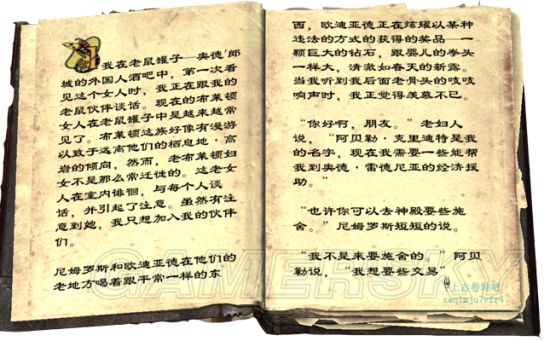 我在老鼠罐子─奥德'郎
城的外国人酒吧中，第一次看
见这个女人时，我正在跟我的
老鼠伙伴谈话。现在的布莱顿
女人在老鼠罐子中是越来越常
见了。布莱顿这族好像有漫游
以致于远离他们的栖息地·高
岩的倾向，然而，老布莱顿妇
女不是那么常迁徙的。这老女
人在室内徘徊，与每个人谈
话，并引起了注意。虽然有注
意到她，我只想加入我的伙伴
们。
尼姆罗斯和欧迪亚德在他们的
老地方喝着跟平常一样的东
西，欧迪亚德正在炫耀以某种
违法的方式的获得的奖品─一
颗巨大的钻石，跟婴儿的拳头
一样大，清澈如春天的新露。
当我听到我后面老骨头的吱吱
响声时，我正觉得羡慕不已。
“你好啊，朋友。”老妇人
说，“阿贝勒·克里迪特是我
的名字，现在我需要一些能帮
我到奥德·雷德尼亚的经济援
助。”
“也许你可以去神殿要些施
舍。”尼姆罗斯短短的说。
“我不是来要施舍的，”阿贝
勒说，“我想要些交易”
GAMERSKY
上古卷轴吧